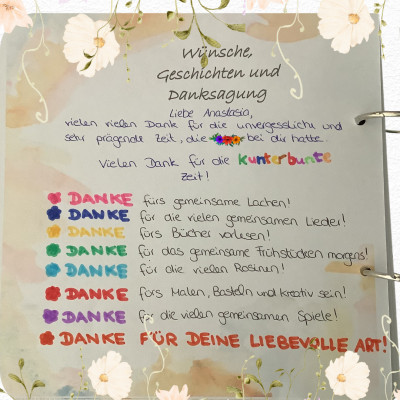 Wünsche,
Geschichten und
Danksagung
Liebe Anastasia,
vielen vielen Dank für die unvergessliche und
sehr prägende Zeit, die bei dir hatte.
Vielen Dank für die kunterbunte
Zeit!
DANKE fürs gemeinsame Lachen!
DANKE für die vielen gemeinsamen Lieder!
DANKE fürs Bücher vorlesen!
DANKE für das gemeinsame Frühstücken morgens!
DANKE für die vielen Rosinen!
DANKE fürs Malen, Basteln und kreativ sein!
DANKE für die vielen gemeinsamen Spiele!
DANKE FÜR DEINE LIEBEVOLLE ART!